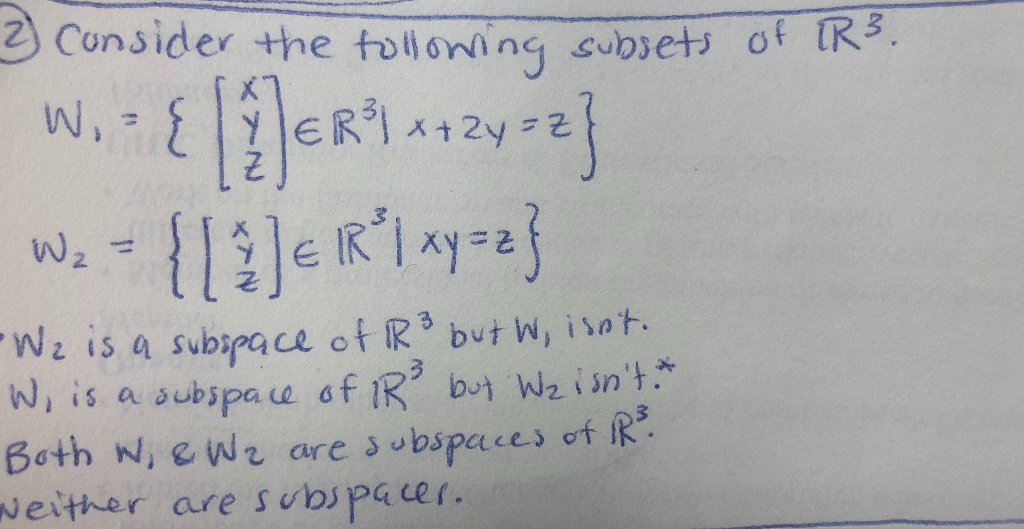 ② Consider the following subsets of ℝ³.
W₁ = { [x y z] ∈ ℝ³ | x + 2y = z }
W₂ = { [x y z] ∈ ℝ³ | xy = z }
• W₂ is a subspace of ℝ³ but W₁ isnt.
W₁ is a subspace of ℝ³ but W₂ isn't.*
Both W₁ & W₂ are subspaces of ℝ³.
Neither are subspaces.